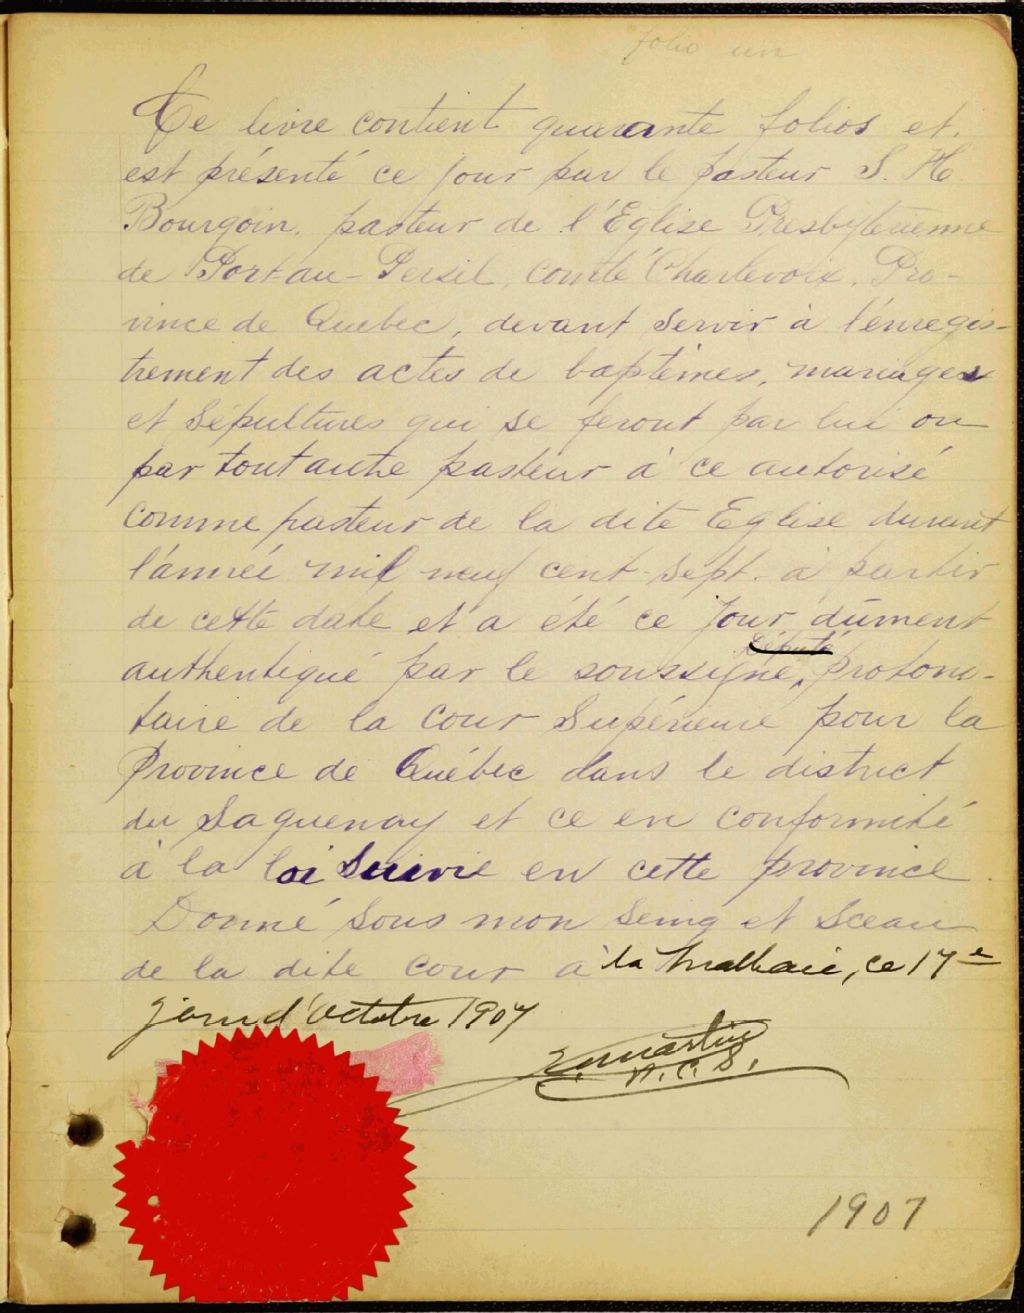 folio un
Ce livre contient quarante folios et
est présenté ce jour par le pasteur S. H.
Bourgoin, pasteur de l'Eglise Presbytérienne
de Port-au-Persil, comté Charlevoix, Pro-
vince de Quebec, devant servir à l'énregis-
trement des actes de baptêmes, mariages
et Sépultures qui se feront par lui ou
par tout autre pasteur à ce autorisé
comme pasteur de la dite Eglise durant
l'année mil neuf cent-sept- à partir
de cette date et a été ce jour dûment
Député
authentiqué par le soussigné, protono-
taire de la Cour Supérieure pour la
Province de Québec dans le district
du Saguenay et ce en conformité
à la loi suivie en cette province.
Donné sous mon seing et Sceau
de la dite cour à la Malbaie, ce 17e
jour d'Octobre 1907
Martin
1907